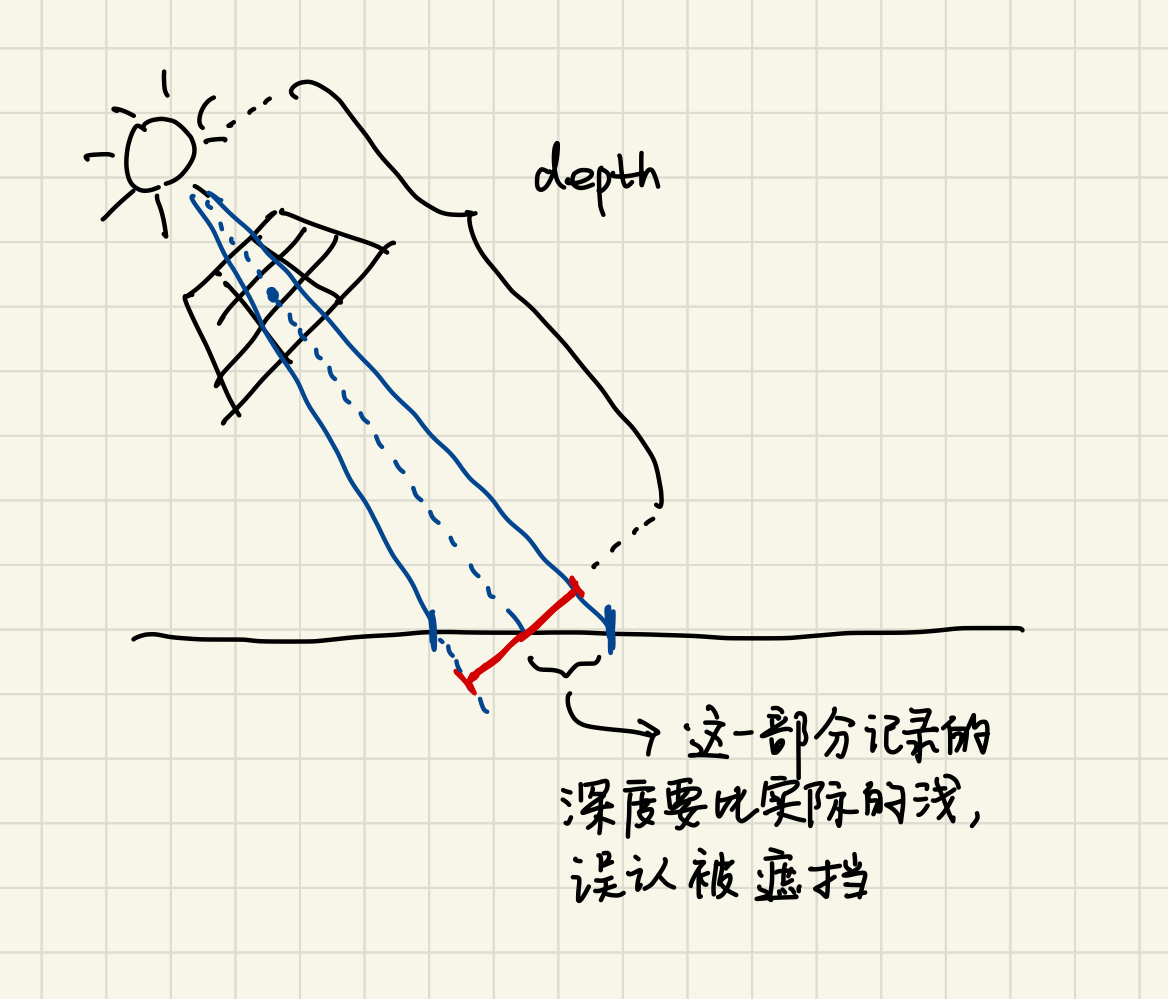 depth
这一部分记录的
深度要比实际的浅，
误认被遮挡